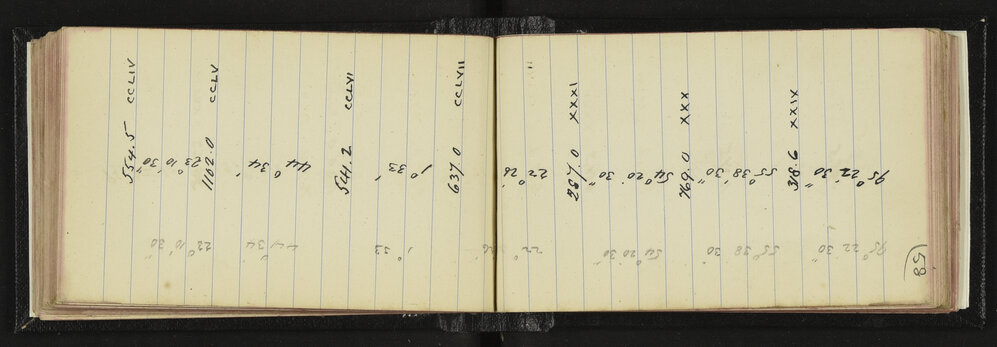 554.5 CCLIV
23° 10' 30"
23° 10' 30"
1102.0 CCLV
44° 34'
44° 34'
541.2 CCLVI
1° 33'
1° 33
637.0 CCLVII
22° 26'
22° 26'
287.0 XXXI
54° 20' 30"
54° 20' 30"
769.0 XXX
55° 38' 30"
55° 38' 30
318.6 XXIX
95° 22' 30"
95° 22' 30"
58